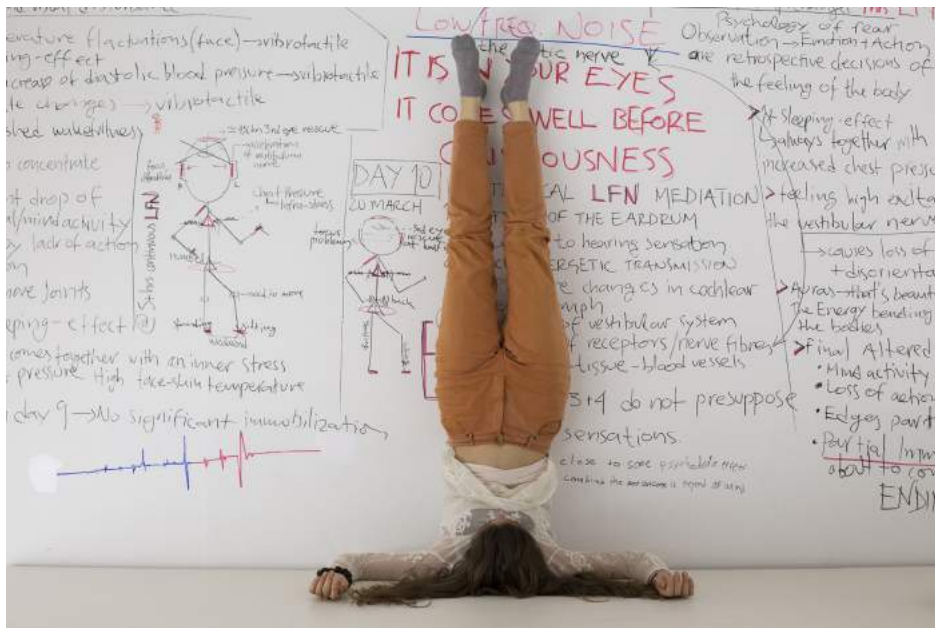 LOW/FREQ NOISE
the tic nerve
IT IS IN YOUR EYES
IT COMES WELL BEFORE
CONSCIOUSNESS
erature flactuations (face) → vibrotactile
ing-effect
crease of diastolic blood pressure → vibrotactile
te changes → vibrotactile
shed wakefulness
concentrate
nt drop of
al/mind activity
by lack of action
move joints
eping-effect
comes together with an inner stress
pressure High face-skin temperature
day 9 → No significant immobilization
3rd eye rescue
Chest Pressure
Infra-stress
need to move
standing
sitting
5 hrs continuous LFN
DAY 10
20 MARCH
focus problems
back
CAL LFN MEDIATION
OF THE EARDRUM
to hearing sensation
ERGETIC TRANSMISSION
e changes in cochlear
mph
of vestibular system
of receptors/nerve fibres
tissue - blood vessels
3+4 do not presuppose
sensations.
close to some
Psychology of fear
Observation → Emotion + Action
are retrospective decisions of
the feeling of the body
Sleeping-effect
always together with
increased chest pressu
feeling high excita
the vestibular nerv
→ causes loss of
+ disorienta
Auras - that's beaut
The Energy bending
the bodies
Final Altered
• Mind activity
• Loss of action
• Edges part
• Partial Imm
about to co
ENDI